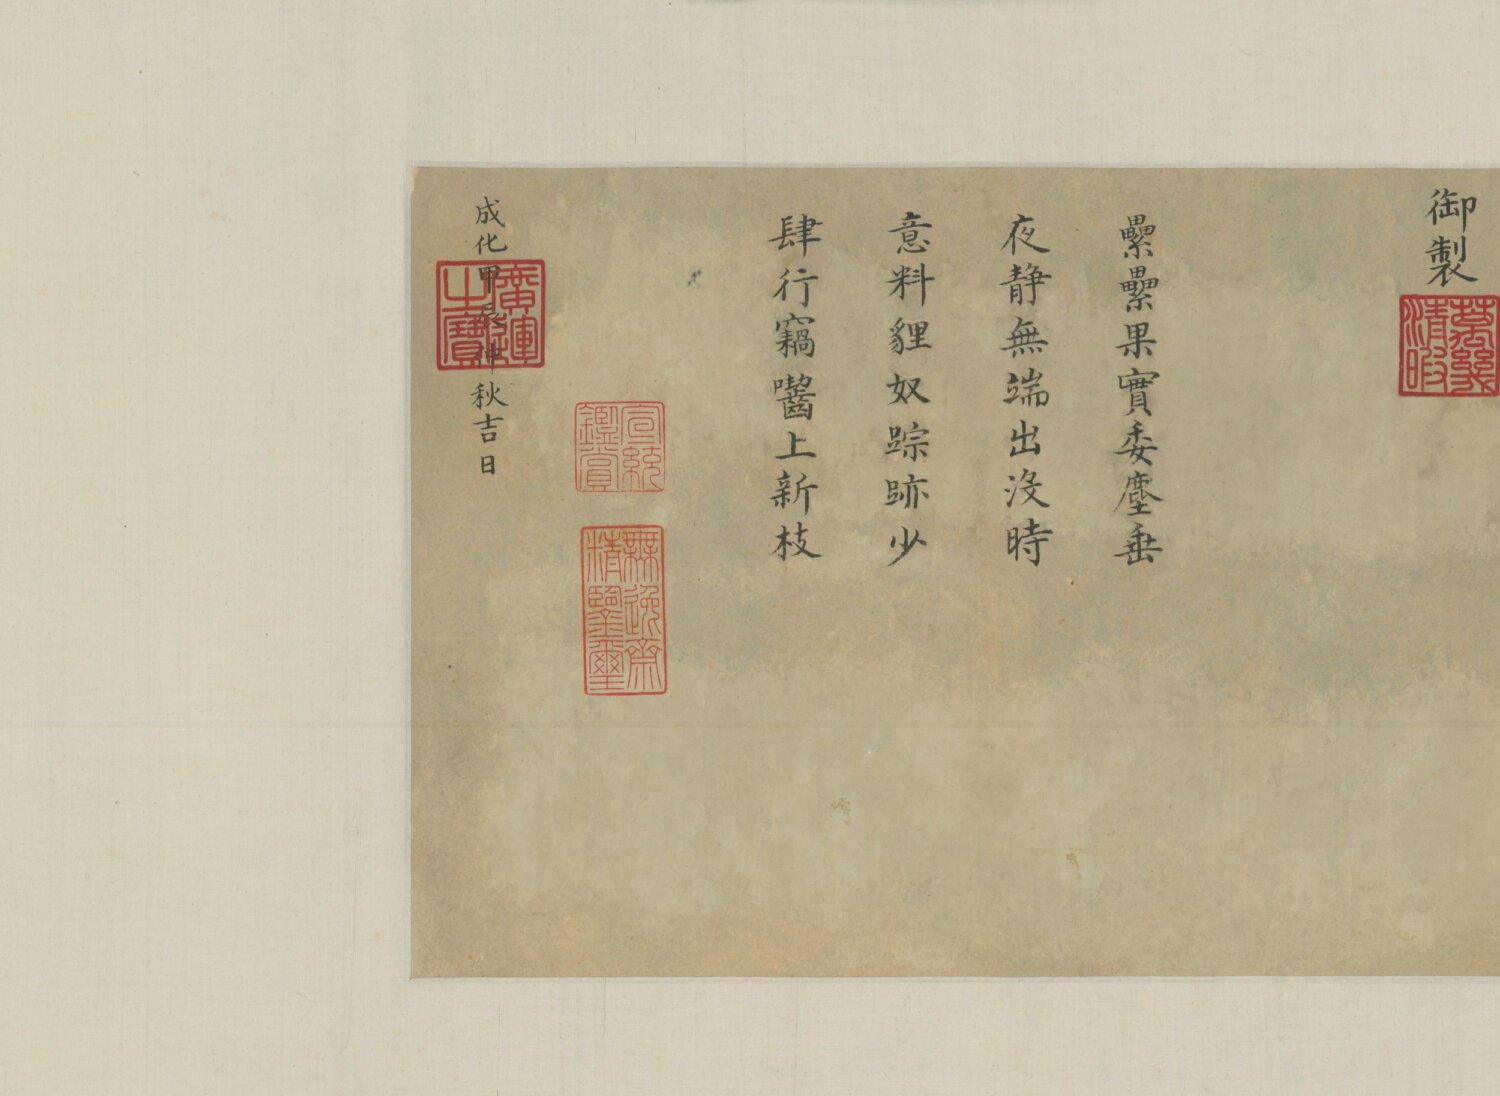 御製
萬幾清暇
纍纍果實委塵埀
夜靜無端出没時
意料貍奴踪跡少
肆行竊嚙上新枝
宣統鑑賞
無逸齋精鑒璽
成化甲辰仲秋吉日
廣運之寶